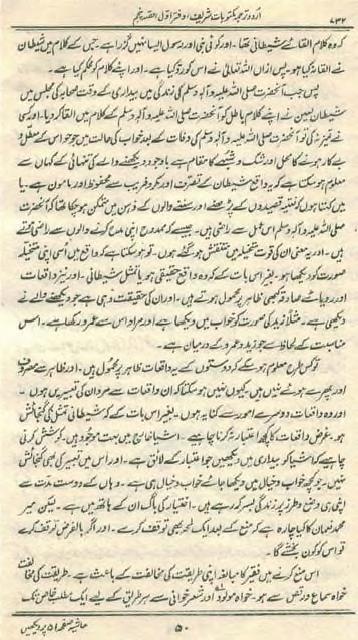 ۷۳۲ اردو ترجمہ مکتوبات شریف، دفتر اول حصہ پنجم
کہ وہ کلام القائے شیطانی تھا۔ اور کوئی نبی اور رسول ایسا نہیں گزرا ہے۔ جس کے کلام میں شیطان
نے القا نہ کیا ہو۔ پس ازاں اللہ تعالیٰ نے اس کو رد کیا ہے۔ اور اپنے کلام کو محکم کیا ہے۔
پس جب آنحضرت صلی اللہ علیہ وآلہ وسلم کی زندگی میں بیداری کے وقت صحابہ کی مجلس میں
شیطان لعین نے اپنے کلام باطل کو آنحضرت صلی اللہ علیہ وآلہ وسلم کے کلام میں القا کر دیا۔ اور کسی
نے تمیز نہ کی تو آنحضرت صلی اللہ علیہ وآلہ وسلم کی وفات کے بعد خواب کی حالت میں جو حواس کے معطل و
بے کار ہونے کا محل اور شک و شبہے کا مقام ہے۔ باوجود دیکھنے والے کی تنہائی کے کہاں سے
معلوم ہو سکتا ہے کہ یہ واقع شیطان کے تصرف اور مکر و فریب سے محفوظ اور مامون ہے۔ یا
میں کہتا ہوں کہ نعتیہ قصیدوں کے پڑھنے اور سننے والوں کے ذہن میں متمکن ہو چکا تھا کہ آنحضرت
صلی اللہ علیہ وآلہ وسلم اس عمل سے راضی ہیں۔ جیسے کہ ممدوح اپنی مدح کرنے والوں سے راضی ہوتے
ہیں۔ اور یہ معنی ان کی قوت متخیلہ میں منتقش ہو گئے ہوں۔ تو ہو سکتا ہے کہ واقع میں اسی اپنی متخیلہ
صورت کو دیکھا ہو۔ بغیر اس بات کے کہ وہ واقع حقیقی ہو یا تمثل شیطانی۔ اور نیز واقعات
اور رویائے صادقہ کبھی ظاہر پر محمول ہوتے ہیں۔ اور ان کی حقیقت وہی ہے جو دیکھنے والے نے
دیکھی ہے۔ مثلاً زید کی صورت کو خواب میں دیکھا ہے اور مراد اس سے عمرو رکھا ہے۔ اس
مناسبت کے لحاظ سے جو زید و عمرو کے درمیان ہے۔
تو کس طرح معلوم ہو سکے کہ دوستوں کے یہ واقعات ظاہر پر محمول ہیں۔ اور ظاہر سے مصروف
اور پھرے ہوئے نہیں ہیں۔ کیوں نہیں ہو سکتا کہ ان واقعات سے مراد ان کی تعبیریں ہوں۔
اور وہ واقعات دوسرے امور سے کنایہ ہوں۔ بغیر اس بات کے کہ شیطانی تمثل کی گنجائش
ہو۔ غرض واقعات کا کچھ اعتبار نہ کرنا چاہیے۔ اشیا خارج میں بہت موجود ہیں۔ کوشش کرنی
چاہیے کہ اشیا کو بیداری میں دیکھیں جو اعتبار کے لائق ہے۔ اور اس میں تعبیر کی بھی گنجائش
نہیں۔ جو کچھ خواب و خیال میں دیکھا جائے خواب و خیال ہی ہے۔ وہاں کے دوست مدت سے
اپنی ہی وضع و طرز پر زندگی بسر کر رہے ہیں۔ اختیار کی باگ ان کے ہاتھ میں ہے۔ لیکن میر
محمد نعمان کا کیا چارہ ہے کہ منع کے بعد ایک لمحہ بھی توقف کرے۔ اور اگر بالفرض توقف کرے
تو اس کو کون بخشے گا۔
اس منع کرنے میں فقیر کا مبالغہ اپنی طریقت کی مخالفت کے باعث ہے۔ طریقت کی مخالفت
خواہ سماع و رقص سے ہو۔ خواہ مولود اور شعر خوانی سے ہر طریق کے لیے ایک مطلب خاص تک
۵۰ حاشیہ صفحہ ۵۱ پر دیکھیں